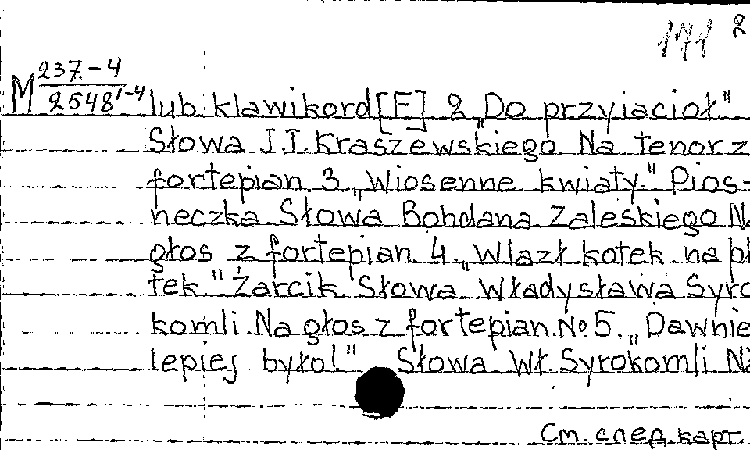 171 2
M 237-4
2548/1-4
lub klawikord [F] 2 „Do przyiacioł"
Słowa J.I. Kraszewskiego Na tenor z
fortepian 3 „Wiosenne kwiaty." Pios-
neczka Słowa Bohdana Zaleskiego Na
głos z fortepian. 4. „Wlazł kotek na pł
tek" Żarcik. Słowa Władysława Syro
komli. Na głos z fortepian. № 5. „Dawniej
lepiej było!" Słowa Wł. Syrokomli Na
См. след. карт.